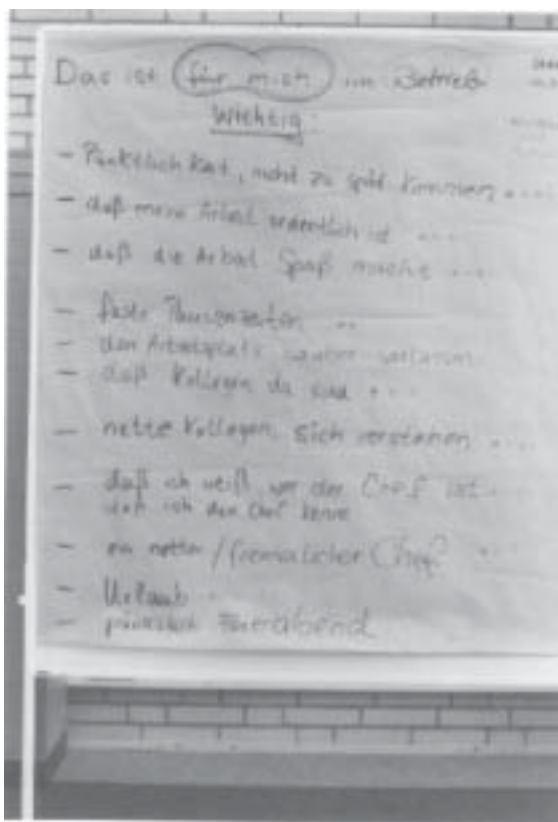 Das ist für mich im Betrieb
Wichtig:
- Pünktlichkeit, nicht zu spät kommen
- daß meine Arbeit ordentlich ist
- daß die Arbeit Spaß macht
- feste Pausenzeiten
- den Arbeitsplatz sauber verlassen
- daß Kollegen da sind
- nette Kollegen, sich verstehen
- daß ich weiß, wer der Chef ist
daß ich den Chef kenne
- ein netter / freundlicher Chef
- Urlaub
- pünktlich Feierabend